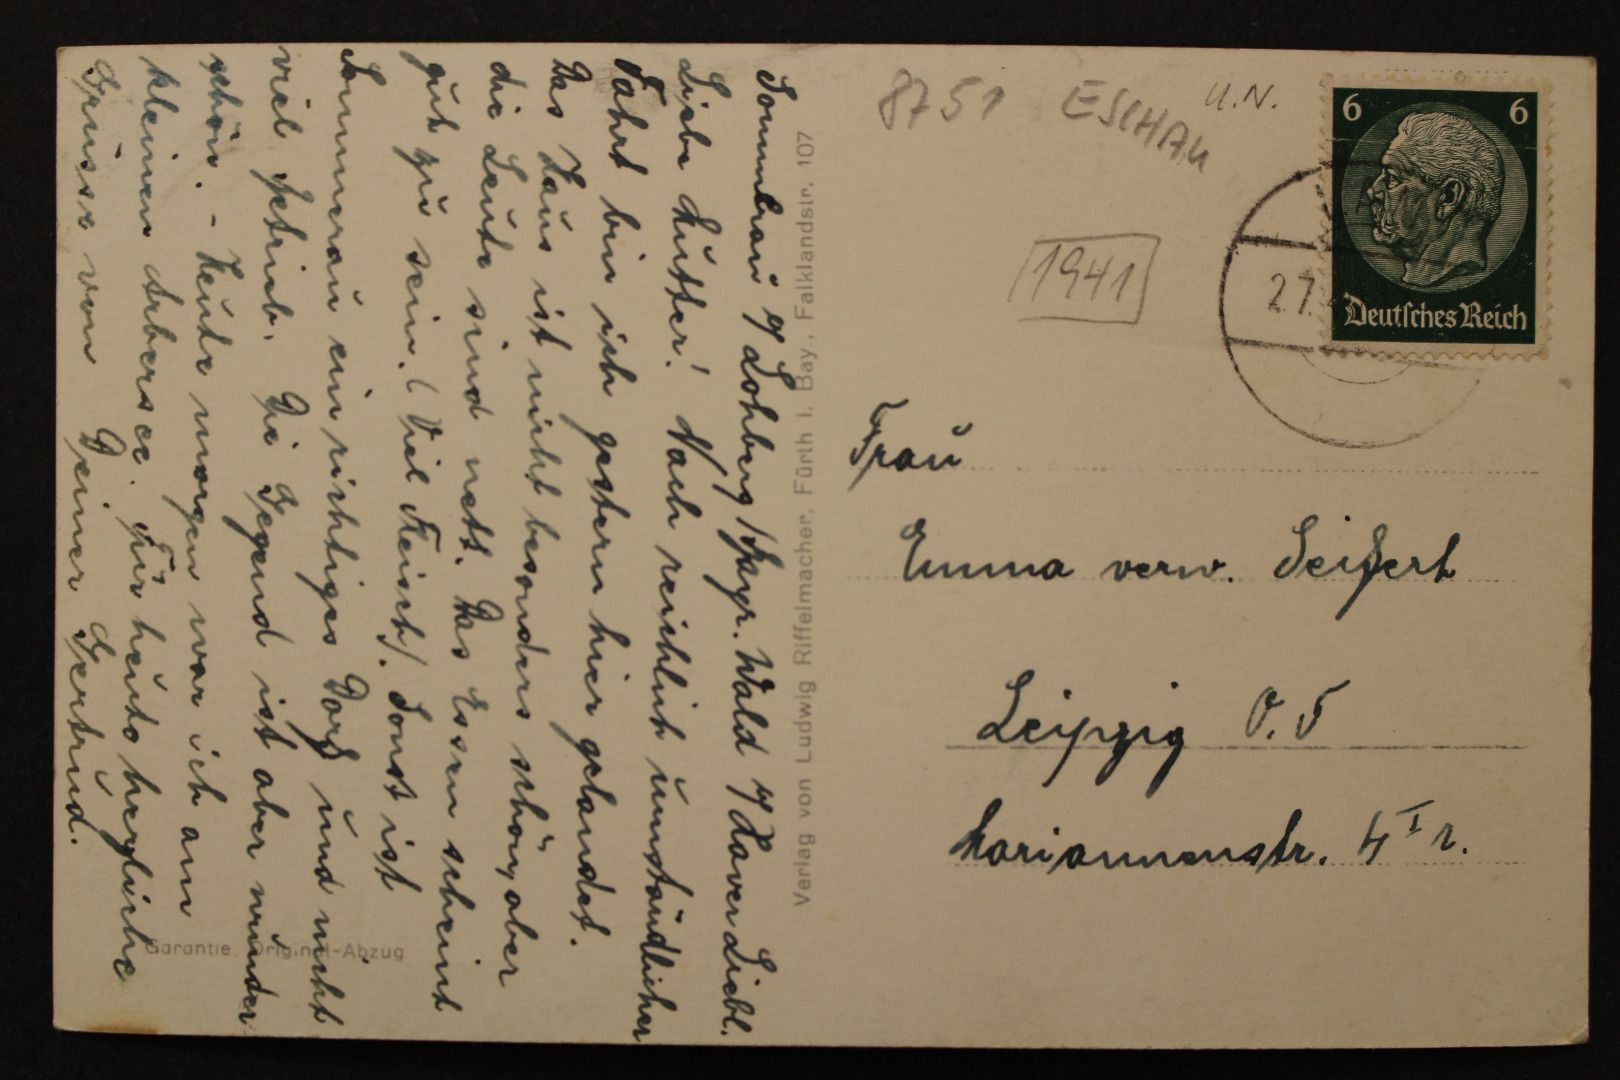 Sommerau ü/ Lohberg /Bayr. Wald b/ Xaver Liebl.
Liebe Mutter! Nach reichlich umständlicher
Fahrt bin ich gestern hier gelandet.
Das Haus ist nicht besonders schön, aber
die Leute sind nett. Das Essen scheint
gut zu sein. (Viel Fleisch). Sonst ist
Sommerau ein richtiges Dorf und nicht
viel Betrieb. Die Gegend ist aber wunder
schön. - Heute morgen war ich am
kleinen Arbersee. Für heute herzliche
Grüsse von Deiner Gertrud.
Garantie: Original-Abzug
Verlag von Ludwig Riffelmacher, Fürth i. Bay., Falklandstr. 107
8751 ESCHAU
U.N.
1941
6 6
Deutsches Reich
2.7.
Frau
Emma verw. Seifert
Leipzig O. 5
Mariannenstr. 4 I r.